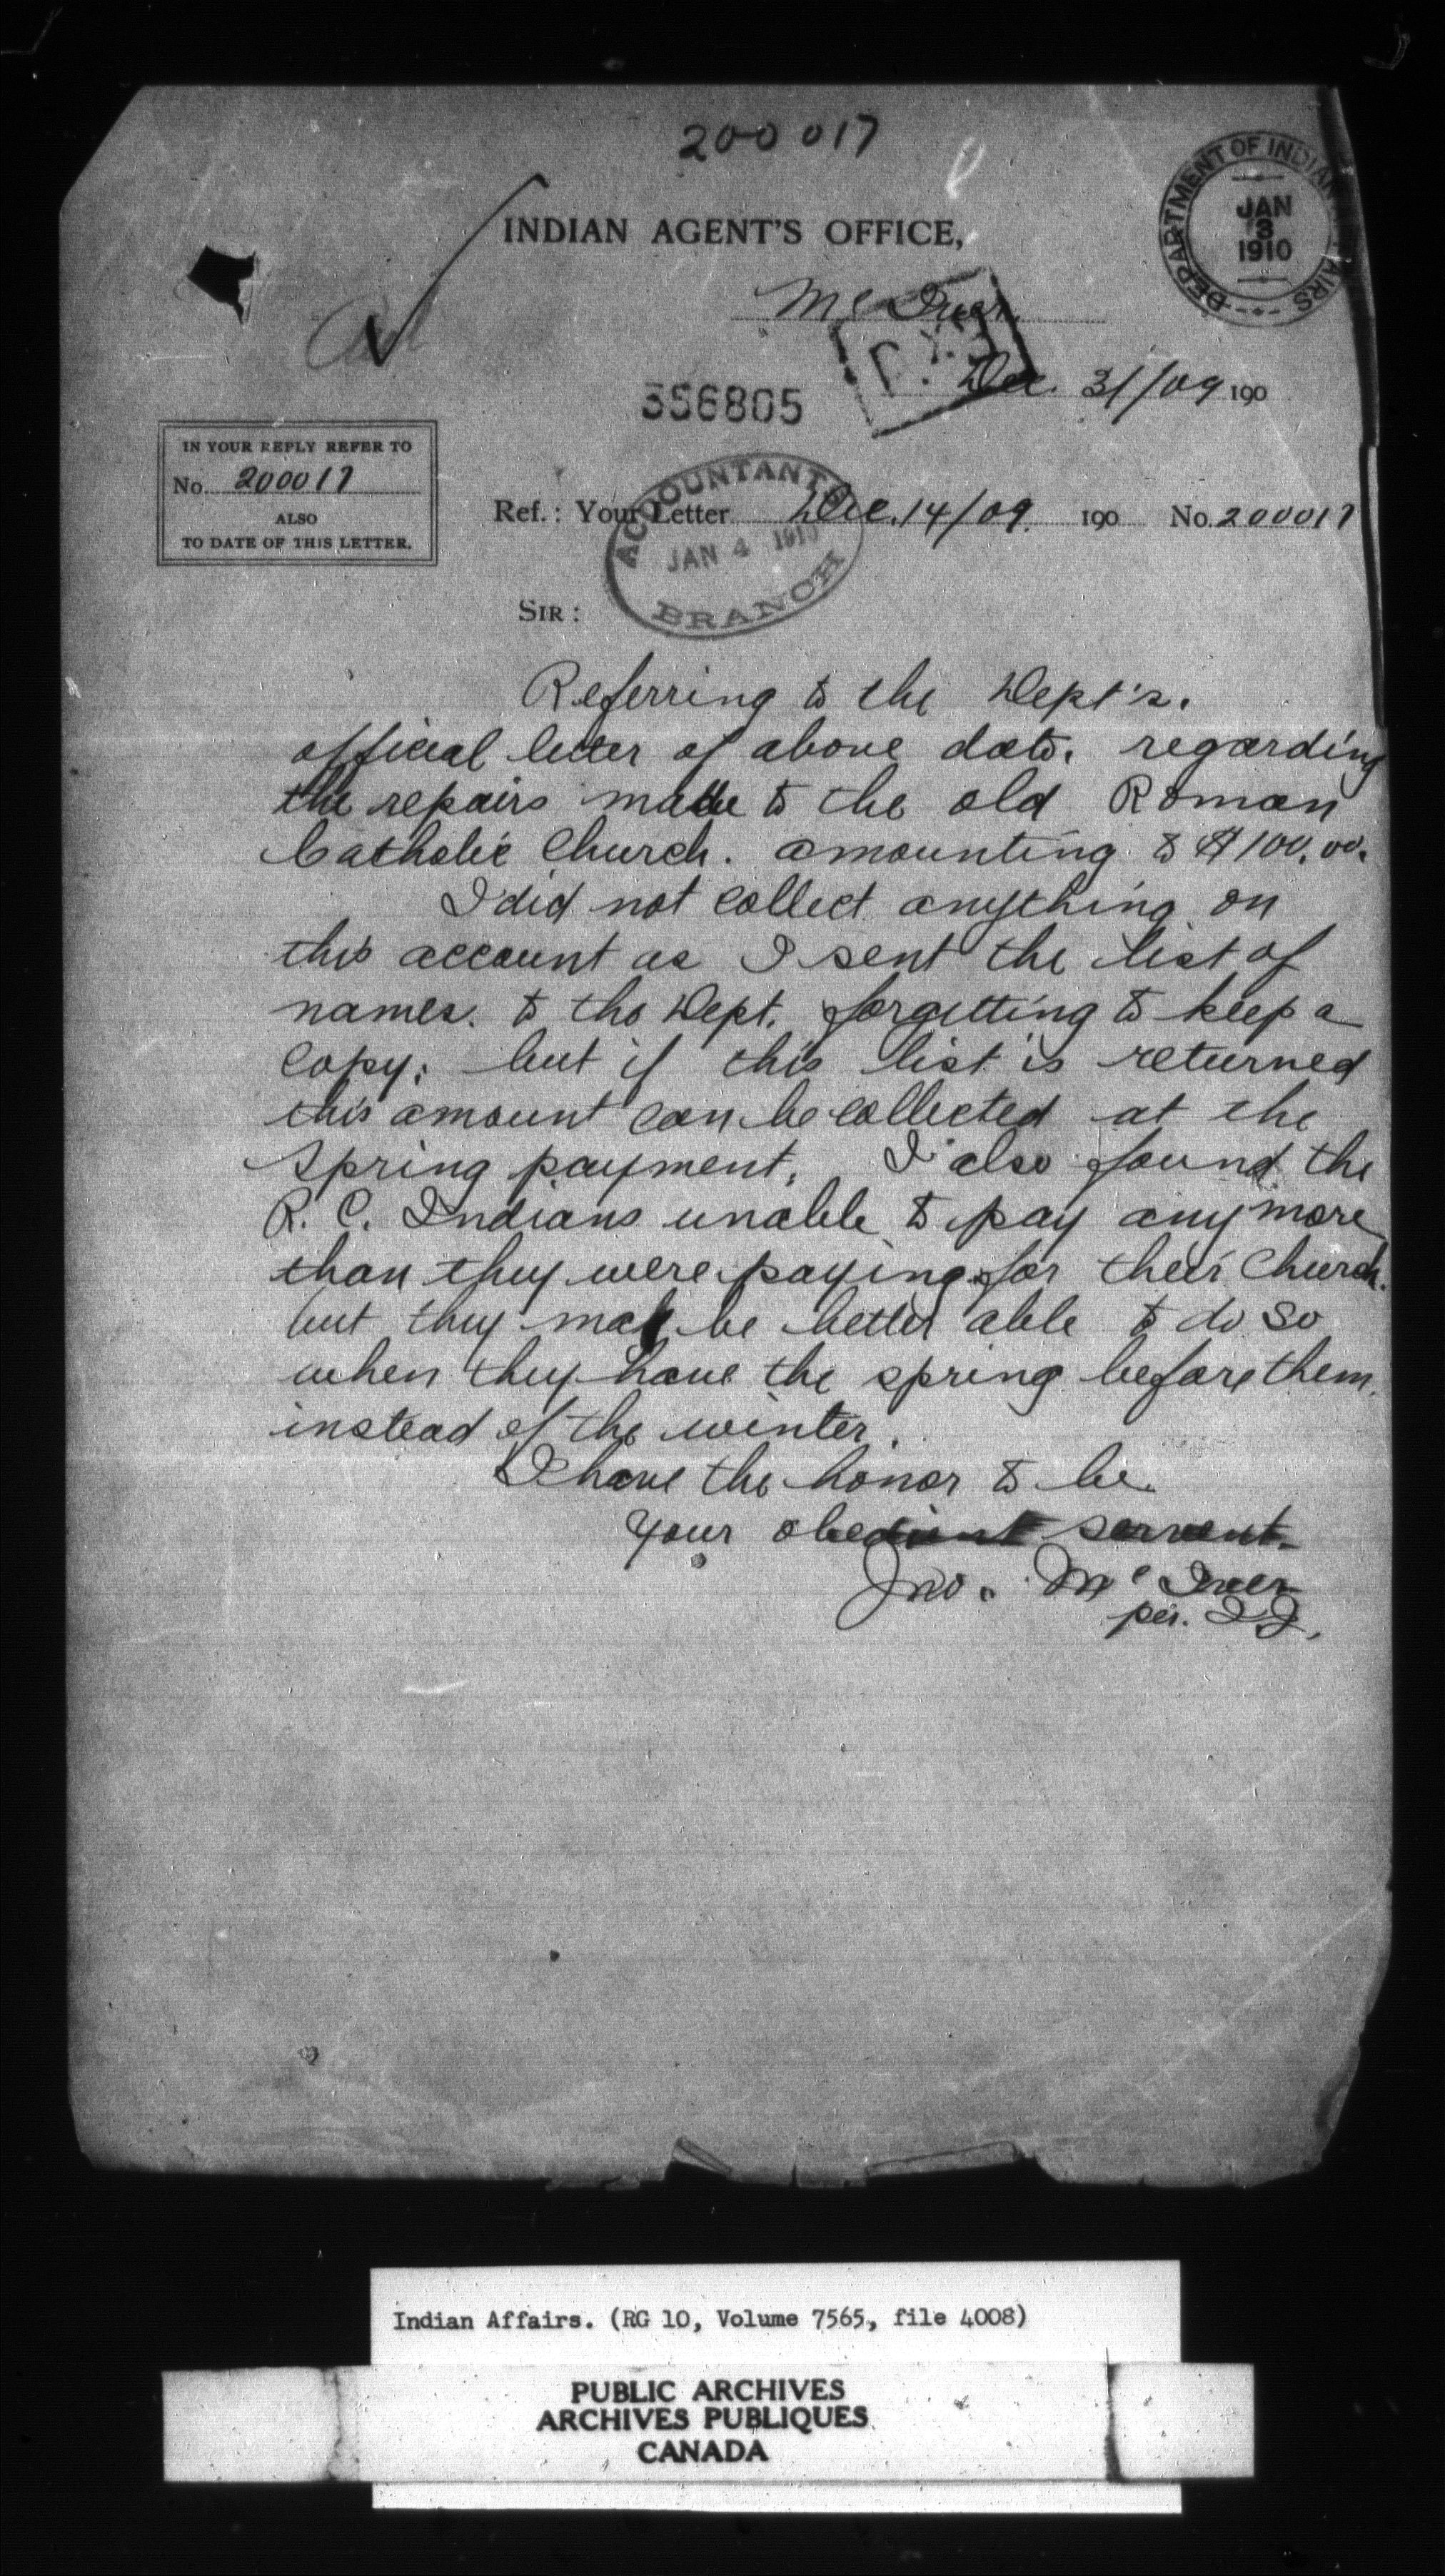 200017
INDIAN AGENT'S OFFICE,
DEPARTMENT OF INDIAN AFFAIRS
JAN
3
1910
Mc Iver.
Dec. 31/09 190
356805
IN YOUR REPLY REFER TO
No. 200017
ALSO
TO DATE OF THIS LETTER.
Ref.: Your Letter Dec. 14/09. 190 No. 200017
ACCOUNTANT'S
JAN 4 1910
BRANCH
SIR:
Referring to the Dept's.
official letter of above date. regarding
the repairs made to the old Roman
Catholic Church. amounting to $100.00.
I did not collect anything on
this account as I sent the list of
names. to the Dept. forgetting to keep a
copy; but if this list is returned
this amount can be collected at the
Spring payment. I also found the
R. C. Indians unable to pay any more
than they were paying for their Church.
but they may be better able to do so
when they have the spring before them.
instead of the winter.
I have the honor to be.
Your obedient servent.
Jno. Mc Iver
per. I I.
Indian Affairs. (RG 10, Volume 7565, file 4008)
PUBLIC ARCHIVES
ARCHIVES PUBLIQUES
CANADA